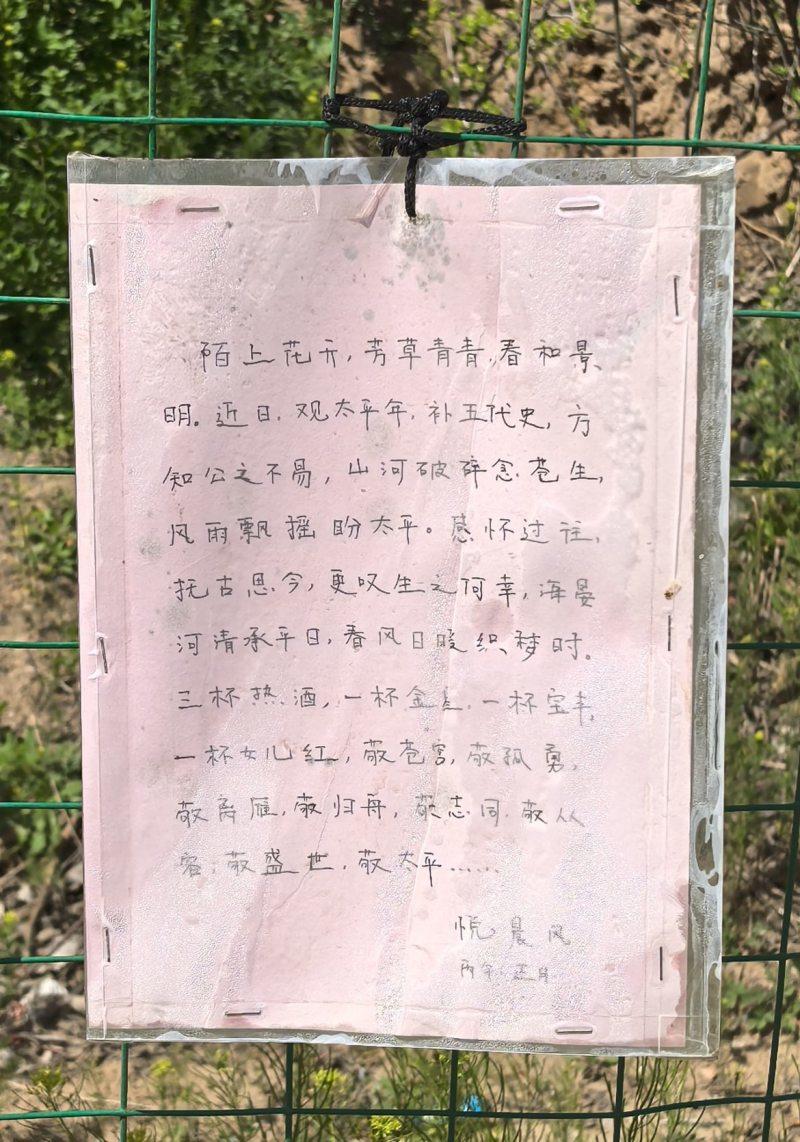 陌上花开，芳草青青，春和景
明。近日，观太平年，补五代史，方
知公之不易，山河破碎念苍生，
风雨飘摇盼太平。感怀过往，
抚古思今，更叹生之何幸，海晏
河清承平日，春风日暖织梦时。
三杯热酒，一杯金，一杯宝丰，
一杯女儿红，敬苍宫，敬孤勇，
敬离雁，敬归舟，敬志同，敬从
容，敬盛世，敬太平……
悦晨风
丙午 正月